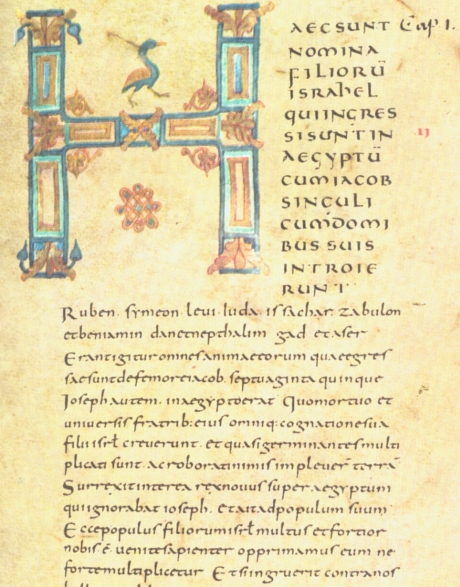 HAEC SUNT Cap. I.
NOMINA
FILIORŪ
ISRAhEL
QUI INGRES
SI SUNT IN II
AEGYPTŪ
CUM IACOB
SINGULI
CUM DOMI
BUS SUIS
INTROIE
RUNT
Ruben. symeon. leui. Iuda. issachar. zabulon
et beniamin dan et nepthalim gad et aser
Erant igitur omnes animae eorum quae egres
sae sunt de femore iacob. septuaginta quinque
Ioseph autem. in aegypto erat Quo mortuo et
uniuersis fratrib: eius omniq; cognatione sua
filii isrl̄ creuerunt. et quasi germinantes multi
plicati sunt. ac roborati nimis impleuer̄ terrā
Surrexit interea rex nouus super aegyptum
qui ignorabat ioseph. et ait ad populum suum
Ecce populus filiorum isrl̄ multus et fortior
nobis ē. uenite sapienter opprimamus eum ne
forte multiplicetur Et si ingruerit contra nos